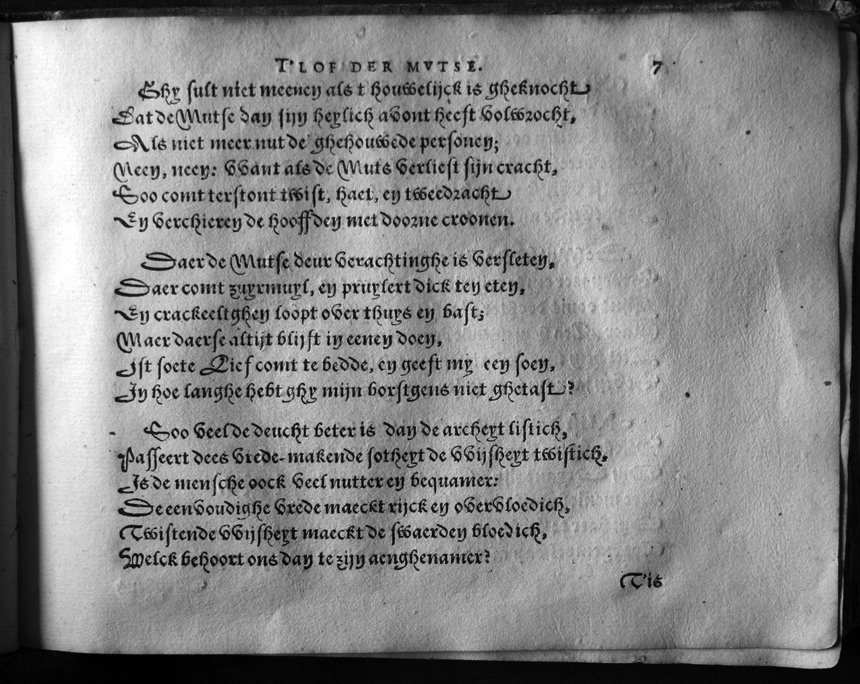 T'LOF DER MVTSE. 7
Ghy sult niet meenen als t houwelijck is gheknocht
Dat de Mutse dan sijn heylich avont heeft volwrocht,
Als niet meer nut de ghehouwede personen;
Neen, neen: VVant als de Muts verliest sijn cracht,
Soo comt terstont twist, haet, en tweedracht
En verchieren de hooffden met doorne croonen.
Daer de Mutse deur verachtinghe is versleten,
Daer comt zuyrmuyl, en pruylert dick ten eten,
En crackeelighen loopt over thuys en bast;
Maer daerse altijt blijft in eenen doen,
Ist soete Lief comt te bedde, en geeft my een soen,
In hoe langhe hebt ghy mijn borstgens niet ghetast?
Soo veel de deucht beter is dan de archeyt listich,
Passeert dees vrede-makende sotheyt de VVijsheyt twistich,
Is de mensche oock veel nutter en bequamer:
De eenvoudighe vrede maeckt rijck en overvloedich,
Twistende VVijsheyt maeckt de swaerden bloedich,
Welck behoort ons dan te zijn aenghenamer?
T'is